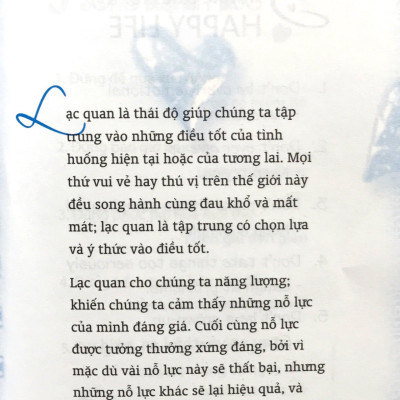 HAPPY LIFE
Lạc quan là thái độ giúp chúng ta tập
trung vào những điều tốt của tình
huống hiện tại hoặc của tương lai. Mọi
thứ vui vẻ hay thú vị trên thế giới này
đều song hành cùng đau khổ và mất
mát; lạc quan là tập trung có chọn lựa
và ý thức vào điều tốt.
Lạc quan cho chúng ta năng lượng;
khiến chúng ta cảm thấy những nỗ lực
của mình đáng giá. Cuối cùng nỗ lực
được tưởng thưởng xứng đáng, bởi vì
mặc dù vài nỗ lực này sẽ thất bại, nhưng
những nỗ lực khác sẽ lại hiệu quả, và